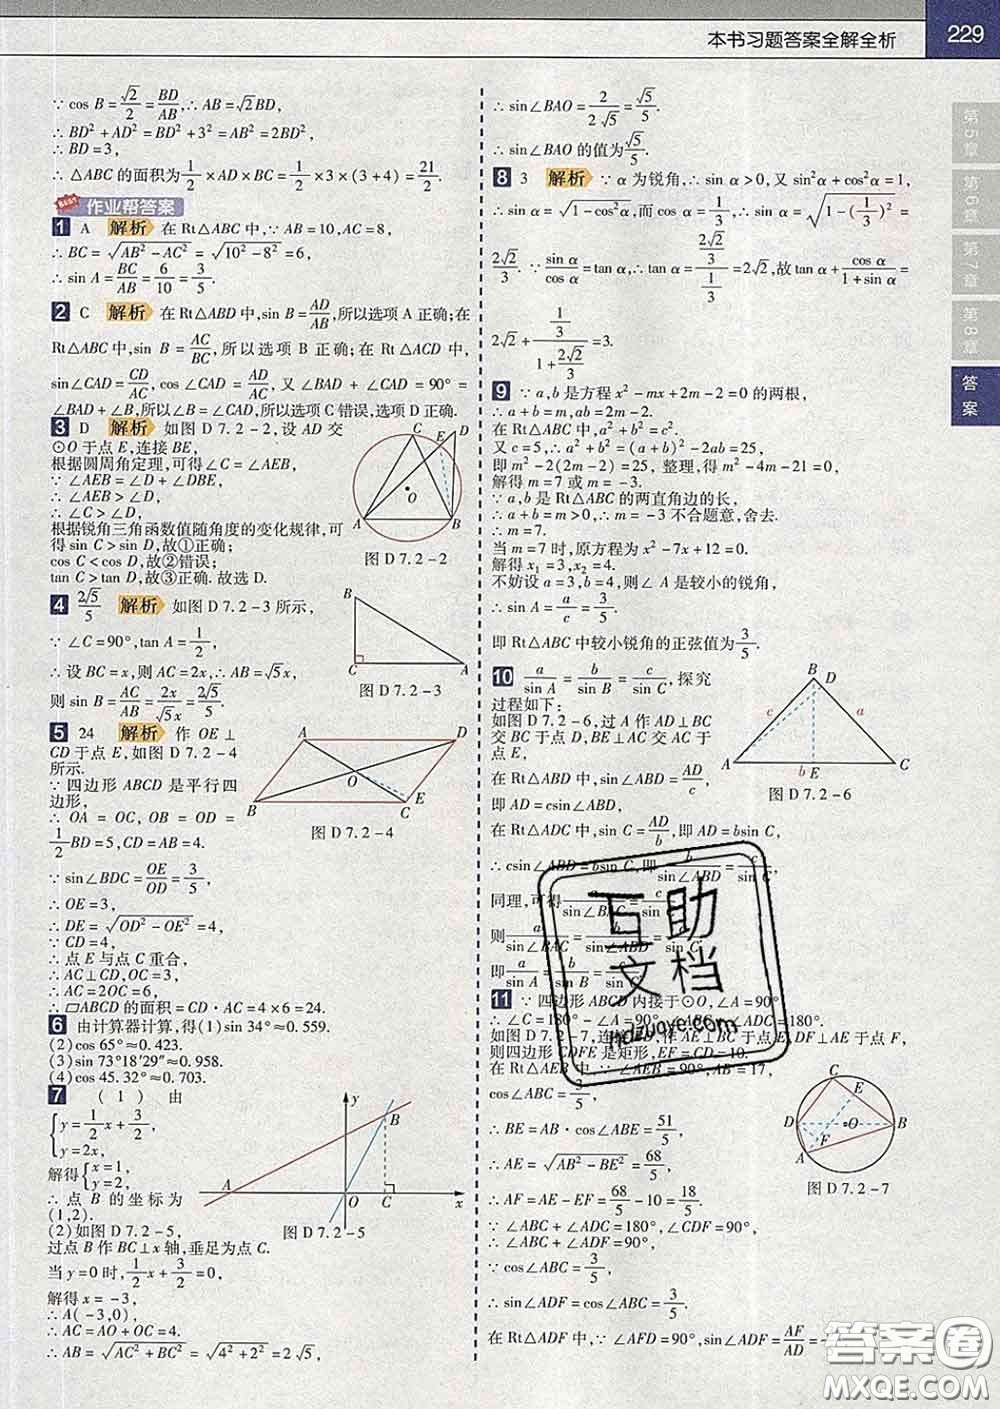 本书习题答案全解全析
229
∵ cos B = √2/2 = BD/AB, ∴ AB = √2BD,
∴ BD² + AD² = BD² + 3² = AB² = 2BD²,
∴ BD = 3,
∴ △ABC 的面积为 1/2 × AD × BC = 1/2 × 3 × (3 + 4) = 21/2.
作业帮答案
1 A 解析 在 Rt△ABC 中, ∵ AB = 10, AC = 8,
∴ BC = √(AB² − AC²) = √(10² − 8²) = 6,
∴ sin A = BC/AB = 6/10 = 3/5.
2 C 解析 在 Rt△ABD 中, sin B = AD/AB, 所以选项 A 正确; 在
Rt△ABC 中, sin B = AC/BC, 所以选项 B 正确; 在 Rt△ACD 中,
sin∠CAD = CD/AC, cos∠CAD = AD/AC, 又∠BAD + ∠CAD = 90° =
∠BAD + ∠B, 所以∠B = ∠CAD, 所以选项 C 错误, 选项 D 正确.
3 D 解析 如图 D 7. 2 − 2, 设 AD 交
⊙O 于点 E, 连接 BE,
根据圆周角定理, 可得∠C = ∠AEB,
∵ ∠AEB = ∠D + ∠DBE,
∴ ∠AEB > ∠D,
∴ ∠C > ∠D,
根据锐角三角函数值随角度的变化规律, 可
得 sin C > sin D, 故①正确;
cos C < cos D, 故②错误;
tan C > tan D, 故③正确. 故选 D.
C E D O A B
图 D 7. 2 − 2
4 2√5/5 解析 如图 D 7. 2 − 3 所示,
∵ ∠C = 90°, tan A = 1/2,
∴ 设 BC = x, 则 AC = 2x, ∴ AB = √5x,
则 sin B = AC/AB = 2x/√5x = 2√5/5.
B C A
图 D 7. 2 − 3
5 24 解析 作 OE ⊥
CD 于点 E, 如图 D 7. 2 − 4
所示.
∵ 四边形 ABCD 是平行四
边形,
∴ OA = OC, OB = OD =
1/2 BD = 5, CD = AB = 4.
∵ sin∠BDC = OE/OD = 3/5,
∴ OE = 3,
∴ DE = √(OD² − OE²) = 4,
∵ CD = 4,
∴ 点 E 与点 C 重合,
∴ AC ⊥ CD, OC = 3,
∴ AC = 2OC = 6,
∴ □ABCD 的面积 = CD · AC = 4 × 6 = 24.
A D O B C E
图 D 7. 2 − 4
6 由计算器计算, 得 (1) sin 34° ≈ 0. 559.
(2) cos 65° ≈ 0. 423.
(3) sin 73°18′29″ ≈ 0. 958.
(4) cos 45. 32° ≈ 0. 703.
7 (1) 由
{ y = 1/2 x + 3/2,
y = 2x,
解得 { x = 1,
y = 2,
∴ 点 B 的坐标为
(1, 2).
(2) 如图 D 7. 2 − 5,
过点 B 作 BC ⊥ x 轴, 垂足为点 C.
当 y = 0 时, 1/2 x + 3/2 = 0,
解得 x = −3,
∴ A(−3, 0),
∴ AC = AO + OC = 4,
∴ AB = √(AC² + BC²) = √(4² + 2²) = 2√5,
y B A O C x
图 D 7. 2 − 5
∴ sin∠BAO = 2/2√5 = √5/5.
∴ sin∠BAO 的值为 √5/5.
8 3 解析 ∵ α 为锐角, ∴ sin α > 0, 又 sin²α + cos²α = 1,
∴ sin α = √(1 − cos²α), 而 cos α = 1/3, ∴ sin α = √(1 − (1/3)²) =
2√2/3. ∵ sin α/cos α = tan α, ∴ tan α = (2√2/3)/(1/3) = 2√2, 故 tan α + cos α/(1 + sin α) =
2√2 + (1/3)/(1 + 2√2/3) = 3.
9 ∵ a, b 是方程 x² − mx + 2m − 2 = 0 的两根,
∴ a + b = m, ab = 2m − 2.
在 Rt△ABC 中, a² + b² = c².
又 c = 5, ∴ a² + b² = (a + b)² − 2ab = 25,
即 m² − 2(2m − 2) = 25, 整理, 得 m² − 4m − 21 = 0,
解得 m = 7 或 m = −3.
∵ a, b 是 Rt△ABC 的两直角边的长,
∴ a + b = m > 0, ∴ m = −3 不合题意, 舍去.
∴ m = 7.
当 m = 7 时, 原方程为 x² − 7x + 12 = 0.
解得 x₁ = 3, x₂ = 4.
不妨设 a = 3, b = 4, 则∠A 是较小的锐角,
∴ sin A = a/c = 3/5,
即 Rt△ABC 中较小锐角的正弦值为 3/5.
10 a/sin A = b/sin B = c/sin C, 探究
过程如下:
如图 D 7. 2 − 6, 过 A 作 AD ⊥ BC
交 BC 于点 D, BE ⊥ AC 交 AC 于
点 E,
在 Rt△ABD 中, sin∠ABD = AD/c,
即 AD = csin∠ABD,
在 Rt△ADC 中, sin C = AD/b, 即 AD = bsin C,
∴ csin∠ABD = bsin C, 即 b/sin∠ABD = c/sin C,
同理, 可得 a/sin∠BAC = c/sin C,
则 a/sin∠BAC = b/sin∠ABD = c/sin C,
即 a/sin A = b/sin B = c/sin C.
B D c a A b E C
图 D 7. 2 − 6
11 ∵ 四边形 ABCD 内接于⊙O, ∠A = 90°,
∴ ∠C = 180° − ∠A = 90°, ∠ABC + ∠ADC = 180°.
如图 D 7. 2 − 7, 连接BD, 作 AE ⊥ BC 于点 E, DF ⊥ AE 于点 F,
则四边形 CDFE 是矩形, EF = CD = 10.
在 Rt△AEB 中, ∵ ∠AEB = 90°, AB = 17,
cos∠ABC = 3/5,
∴ BE = AB · cos∠ABE = 51/5,
∴ AE = √(AB² − BE²) = 68/5,
∴ AF = AE − EF = 68/5 − 10 = 18/5.
∵ ∠ABC + ∠ADC = 180°, ∠CDF = 90°,
∴ ∠ABC + ∠ADF = 90°,
∵ cos∠ABC = 3/5,
∴ sin∠ADF = cos∠ABC = 3/5.
在 Rt△ADF 中, ∵ ∠AFD = 90°, sin∠ADF = AF/AD =
C E D O B F A
图 D 7. 2 − 7
第5章
第6章
第7章
第8章
答案
互助
文档
hdzuoye.com
答案圈
MXQE.COM